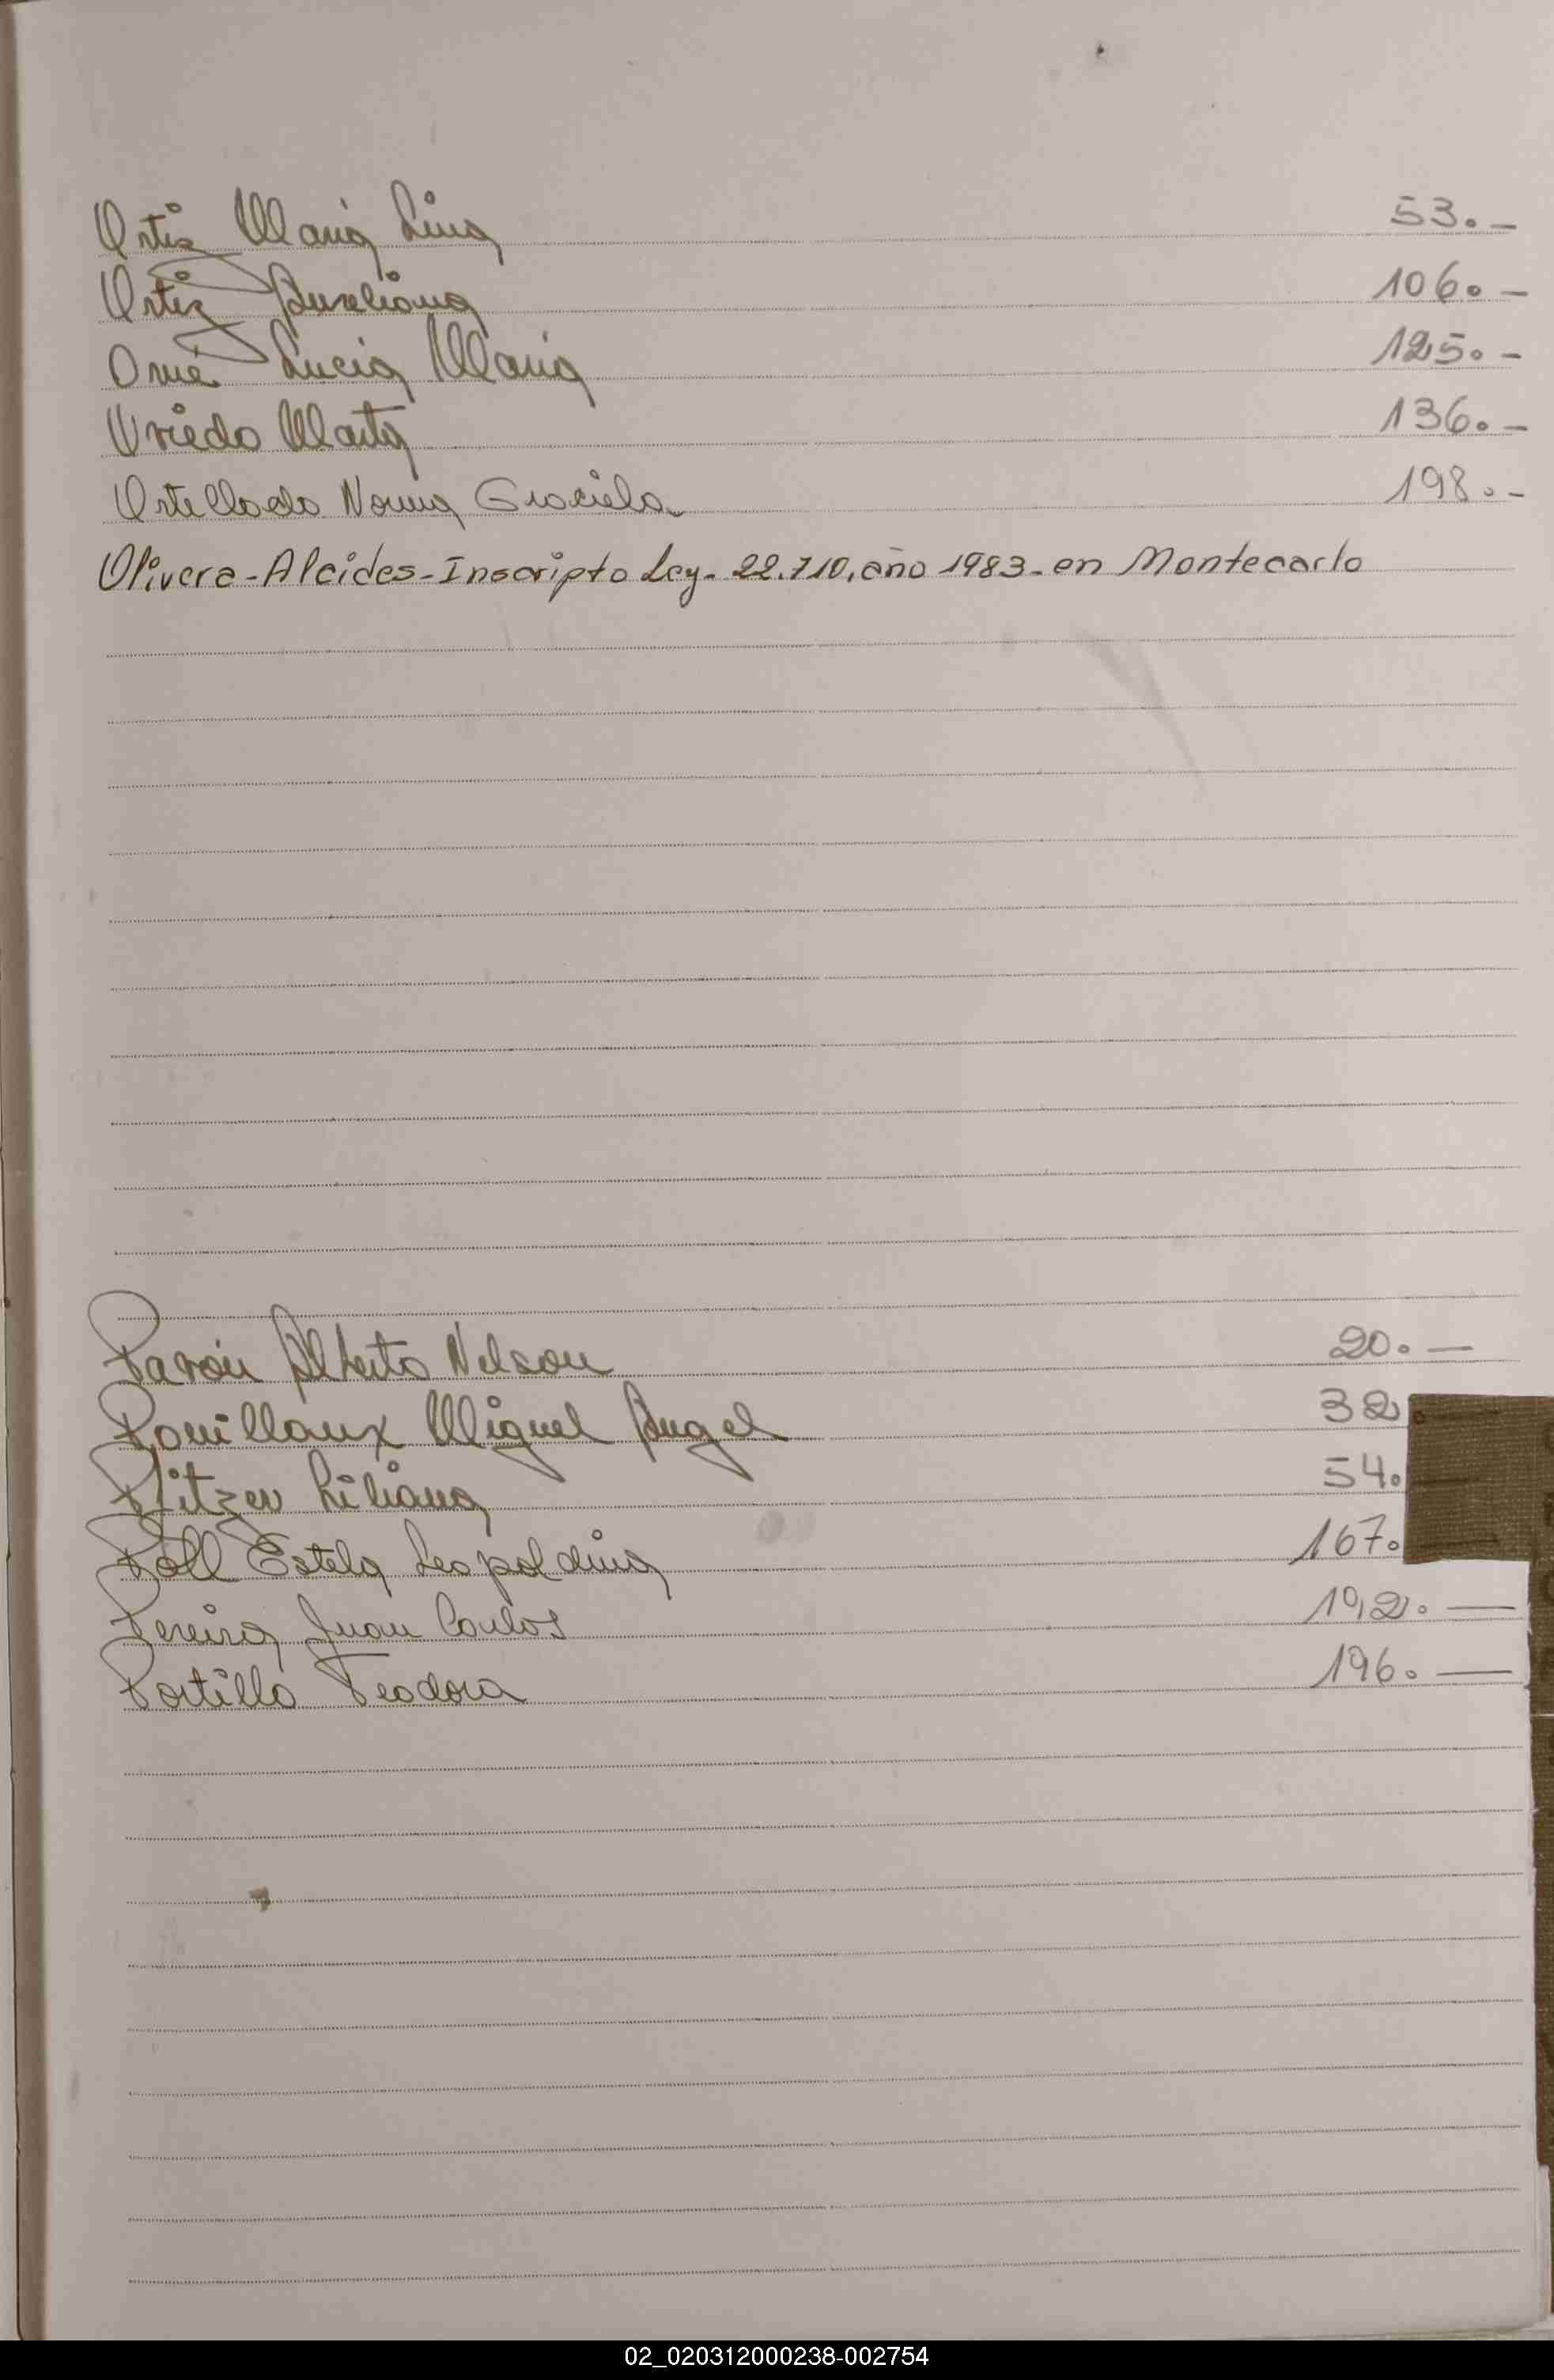 Ortiz María Lina 53.-
Ortiz Aureliana 106.-
Omé Lucia María 125.-
Oviedo Marta 136.-
Ortellado Norma Graciela 198.-
Olivera-Alcides-Inscripto Ley-22.710, año 1983-en Montecarlo
Pavón Alberto Nelson 20.-
Pouilloux Miguel Angel 32.
Pfitzer Liliana 54.
Poll Estela Leopoldina 167.
Pereira Juan Carlos 192.-
Portillo Teodora 196.-
02_020312000238-002754